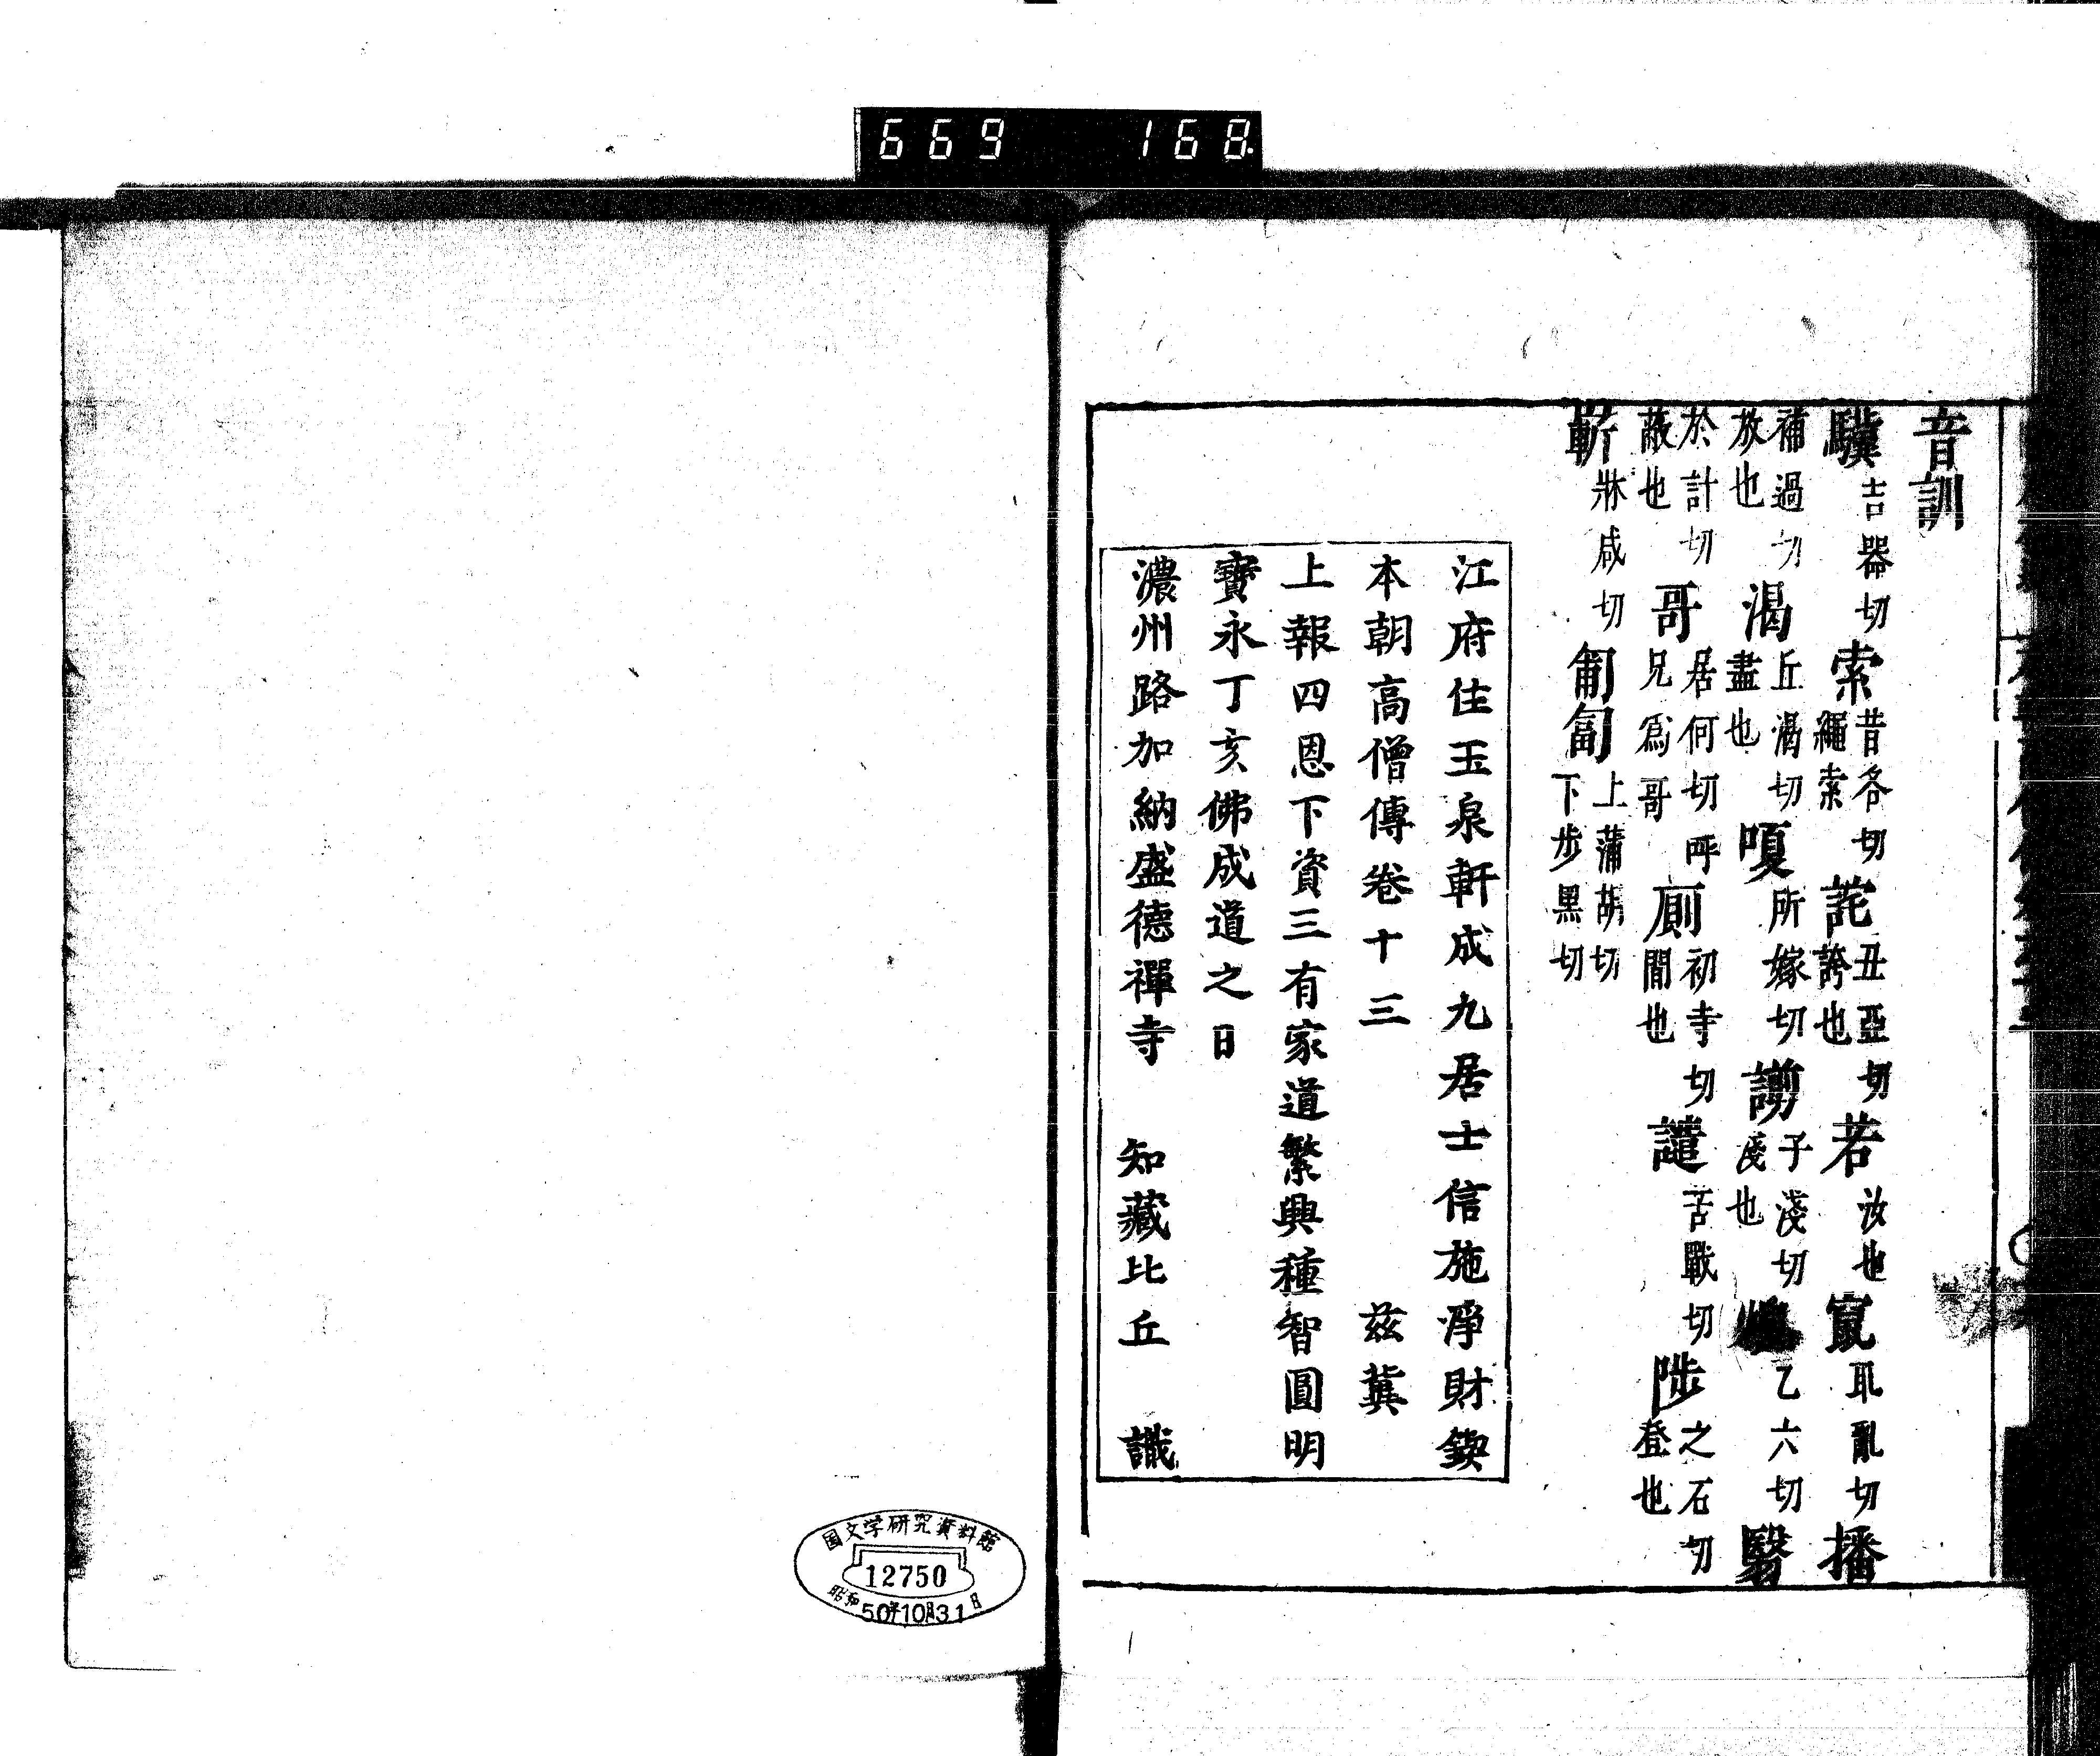 669 168
音訓
驥吉器切索昔各切繩索詫丑亞切誇也若汝也竄取亂切播
補過切放也渴丘渴切盡也嗄所嫁切謭子淺切淺也乙六切翳
於計切蔽也哥居何切呼兄爲哥厠初寺切間也譴苦戰切陟之石切登也
嶄牀咸切匍匐上蒲胡切下步黑切
江府住玉泉軒成九居士信施淨財鍥
本朝高僧傳卷十三 茲冀
上報四恩下資三有家道繁興種智圓明
寶永丁亥佛成道之日
濃州路加納盛德禪寺 知藏比丘 識
国文学研究資料館
12750
昭和50年10月31日